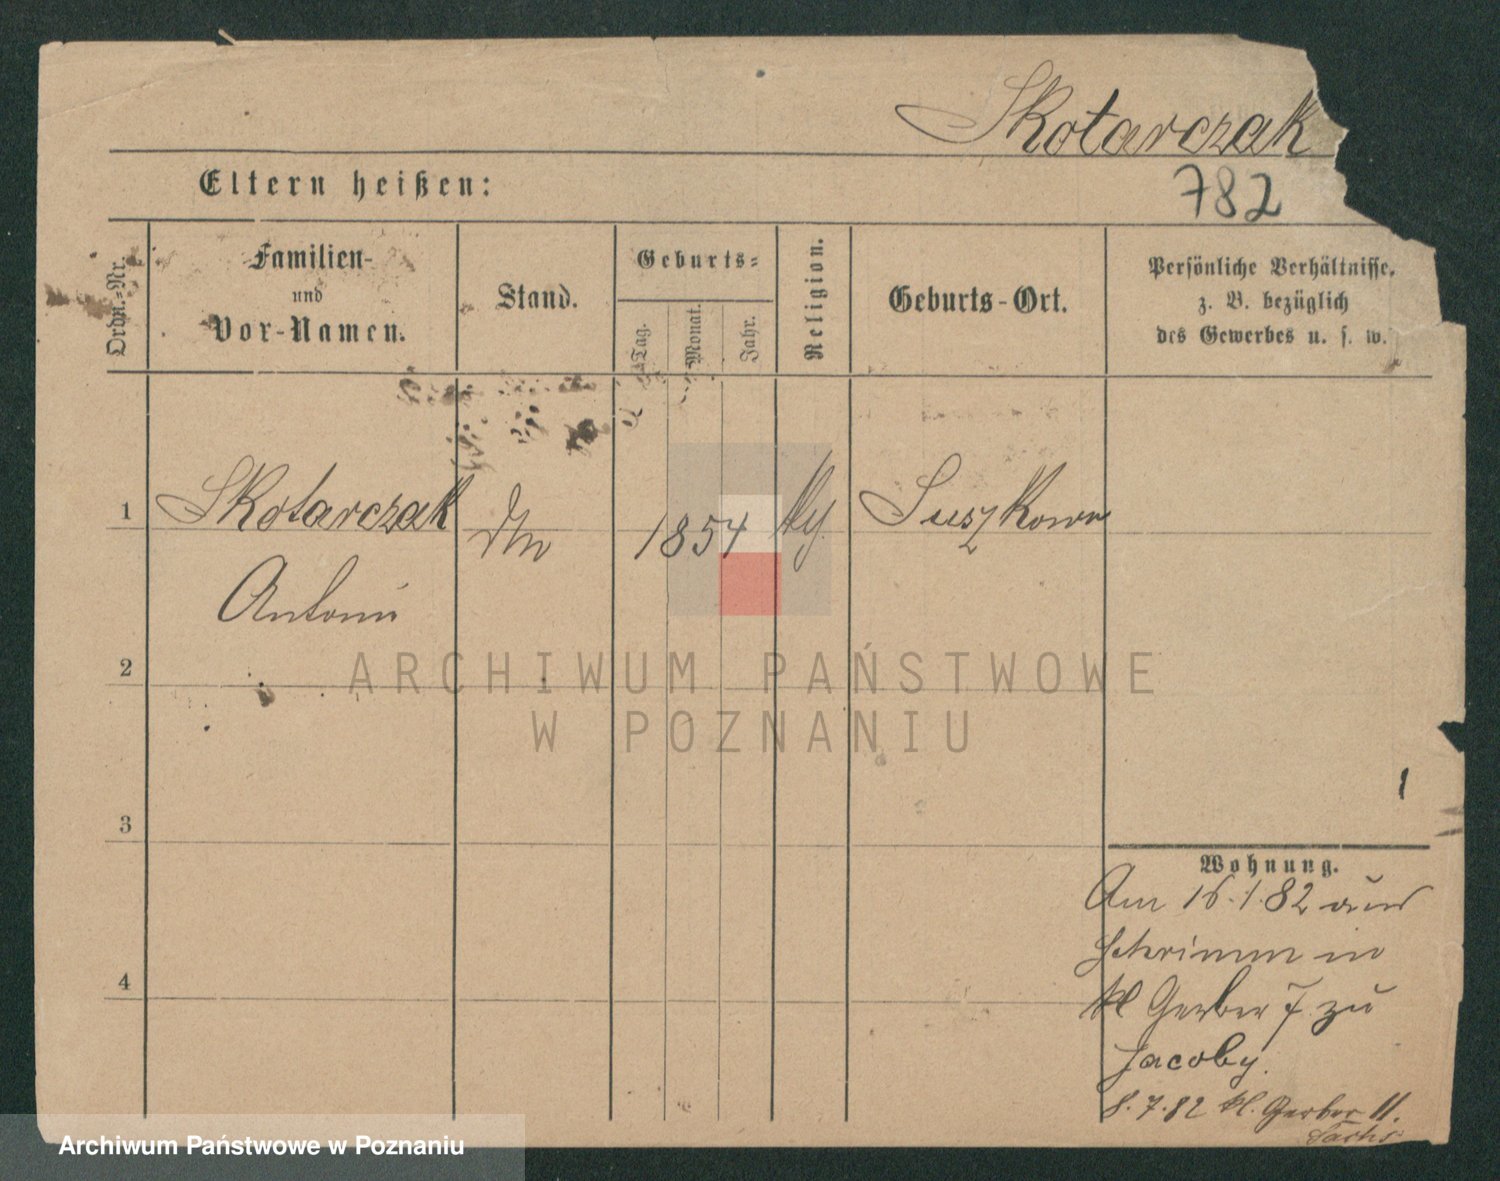 Skotarczak
782
Eltern heißen:
Ordn.-Nr.
Familien-
und
Vor-Namen.
Stand.
Geburts-
Tag.
Monat.
Jahr.
Religion.
Geburts-Ort.
Persönliche Verhältnisse.
z. B. bezüglich
des Gewerbes u. s. w.
1
Skotarczak
1854
Suszkowo
2
ARCHIWUM PAŃSTWOWE
W POZNANIU
3
4
1
Wohnung.
Am 16.1.82 aus
Schrimm in
kl Gerber 7 zu
Jacoby.
8.7.82 kl. Gerber 11.
Archiwum Państwowe w Poznaniu